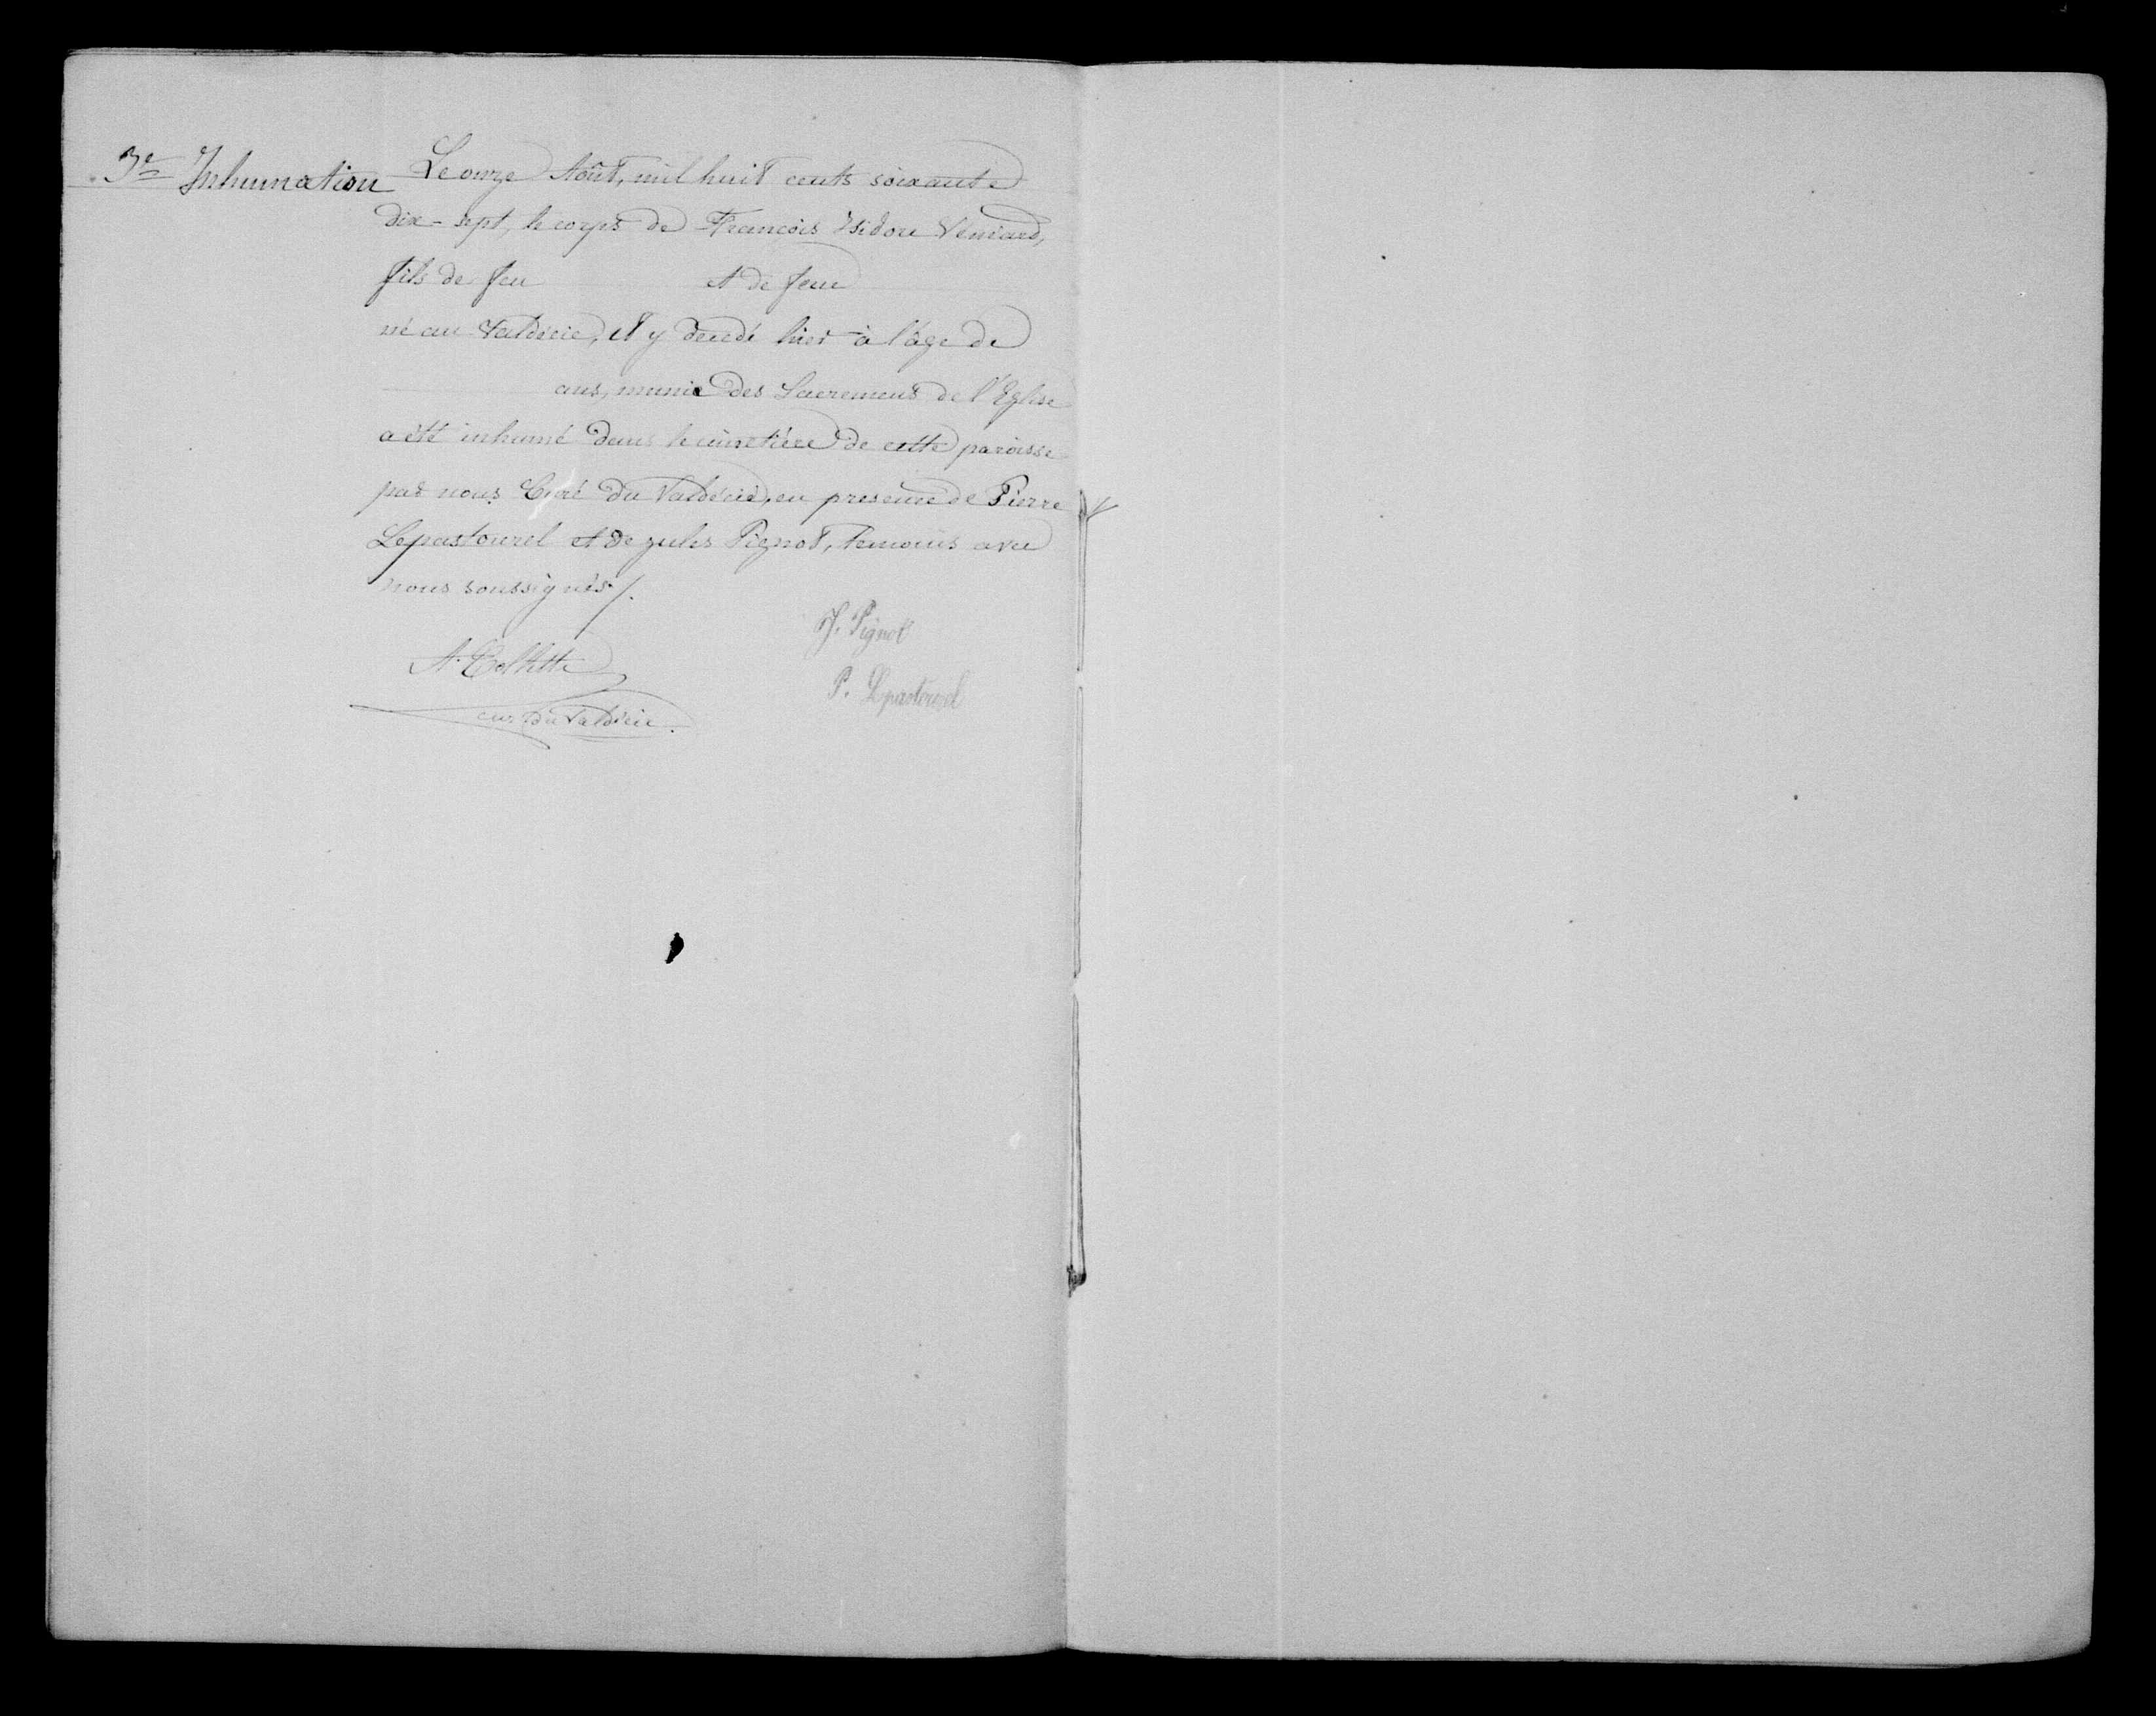 3e Inhumation
Le onze Août, mil huit cents soixante
dix-sept, le corps de François Isidore Véniard,
fils de feu et de feue
né au Valdécie, et y décédé hier à l'âge de
ans, munie des Sacrements de l'Eglise
a été inhumé dans le cimetière de cette paroisse
par nous Curé du Valdécie, en présence de Pierre
Lepastourel et de Jules Pignot, témoins avec
nous soussignés /.
J. Pignot
A.
P. Lepastourel
cur du Valdécie.